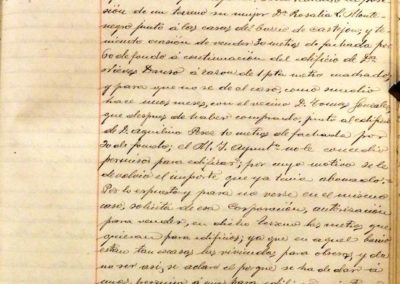 sión de un terreno su mujer Dª Rosalia L. Monte-
negro junto á las casas del barrio de Castejon, y te-
niendo ocasión de vender 30 metros de fachada por
60 de fondo á continuación del edificio de Dn
á razon de 1 pta metro cuadrado,
y para que no se dé el caso, como sucedió
hace unos meses, con el vecino D. Tomas
que despues de haber comprado, junto al edificio
de D. Aquilino Perez 10 metros de fachada por
30 de fondo; el M. I. Ayuntº no le concedió
permiso para edificar; por cuyo motivo se le
devolvió el importe que ya tenia abonado;
Por lo expuesto y para no verse en el mismo
caso, solicita de esa Corporación, autorización
para vender, en dicho terreno los metros que
quieran para edificios; ya que en aquel barrio
estan tan escasas las viviendas para obreros, y de
no ser asi, se aclare el porque se ha de dar á